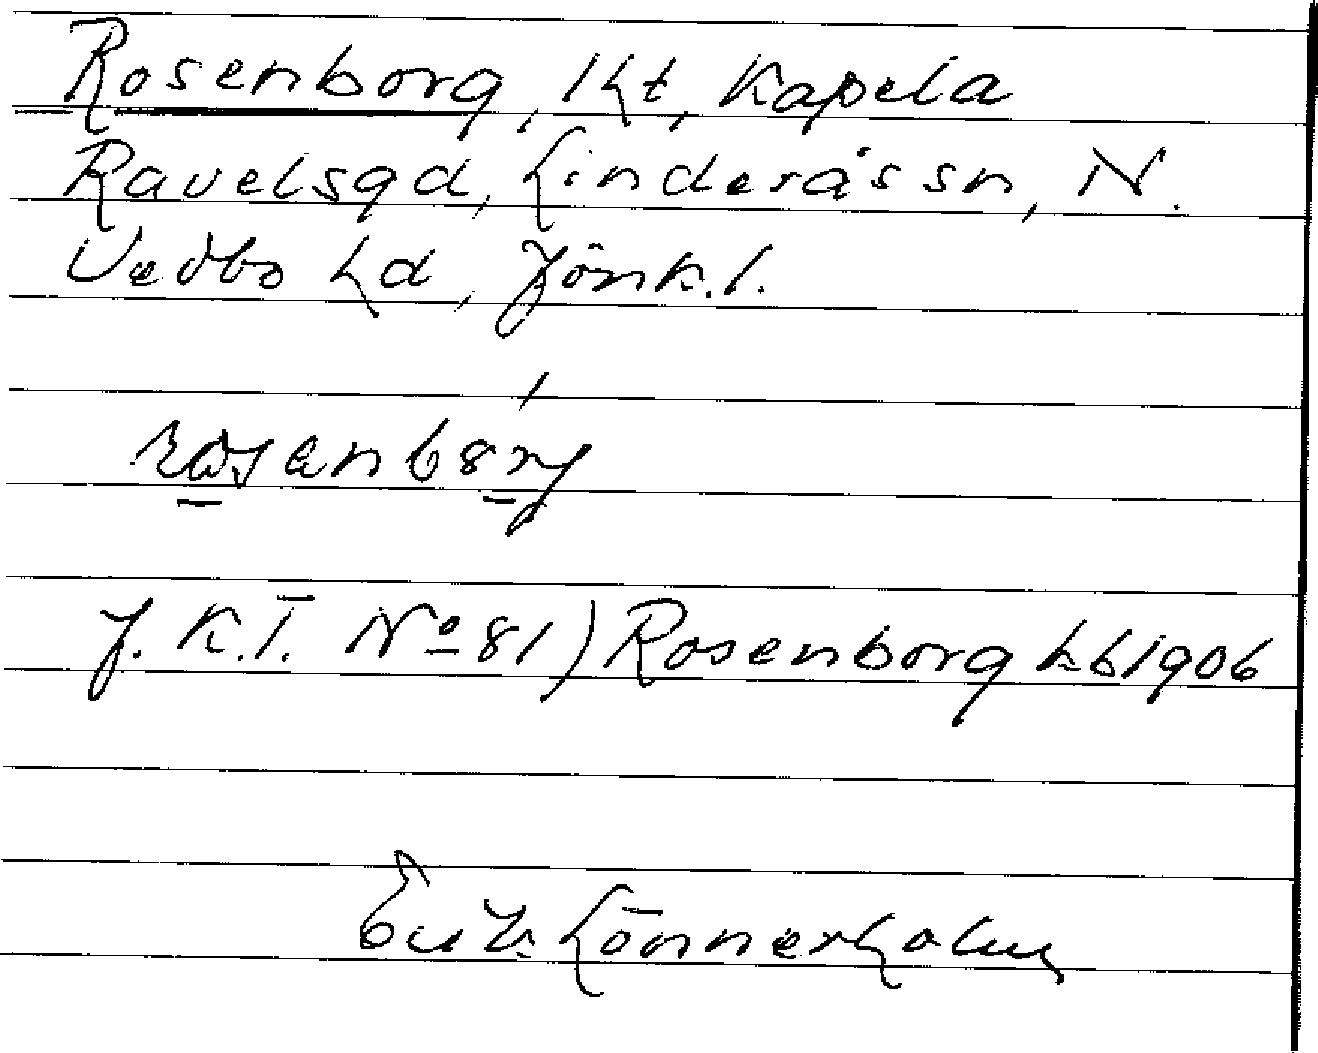 Rosenborg, Kt, Kapela
Ravelsgd, Linderåssn, N.
Vedbo hd, Jönk. l.
J. K. I. No 81) Rosenborg Lb 1906
Erik Lönnerholm